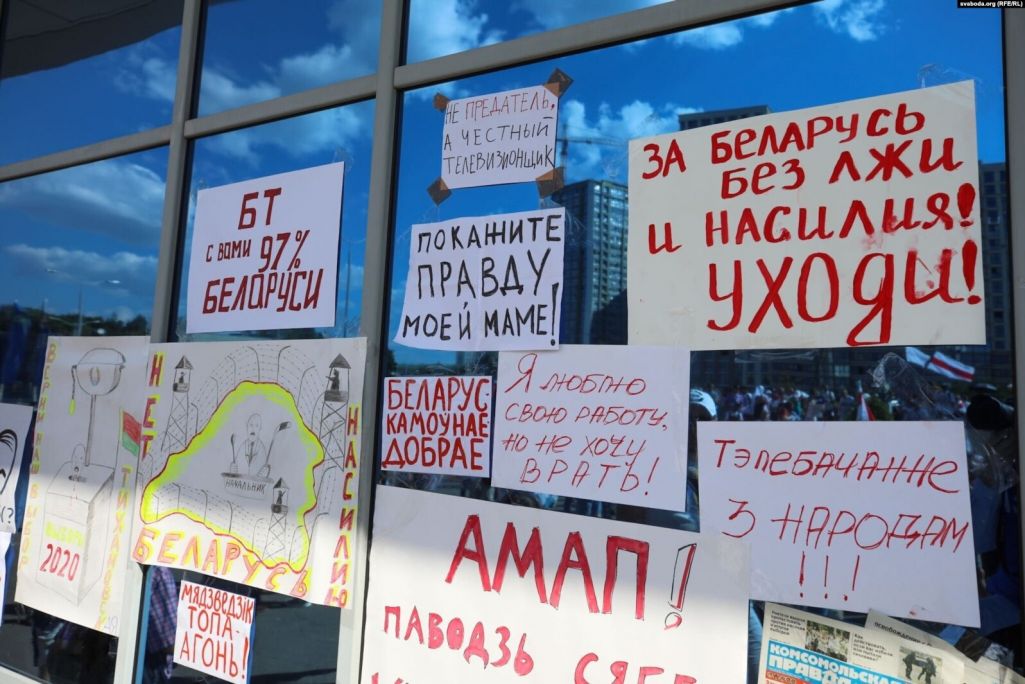 svaboda.org (RFE/RL)
НЕ ПРЕДАТЕЛЬ,
А ЧЕСТНЫЙ
ТЕЛЕВИЗИОНЩИК
ЗА БЕЛАРУСЬ
БЕЗ ЛЖИ
И НАСИЛИЯ!
УХОДИ!
БТ
С ВАМИ 97%
БЕЛАРУСИ
ПОКАЖИТЕ
ПРАВДУ
МОЕЙ МАМЕ!
БЕЛАРУС-
КАМОЎНАЕ
ДОБРАЕ
Я люблю
свою работу,
но не хочу
врать!
Тэлебачанне
З НАРОДАМ
!!!
ВЕРНИ НАШ ВЫБОР
2020
ТИХАНОВСКАЯ
НЕТ
НАСИЛИЮ
НАЧАЛЬНИК
БЕЛАРУСЬ
МЯДЗВЕДЗІК
ТОПА-
АГОНЬ!
АМАП!
ПАВОДЗЬ СЯБЕ
КОМСОМОЛЬСКАЯ
ПРАВДА